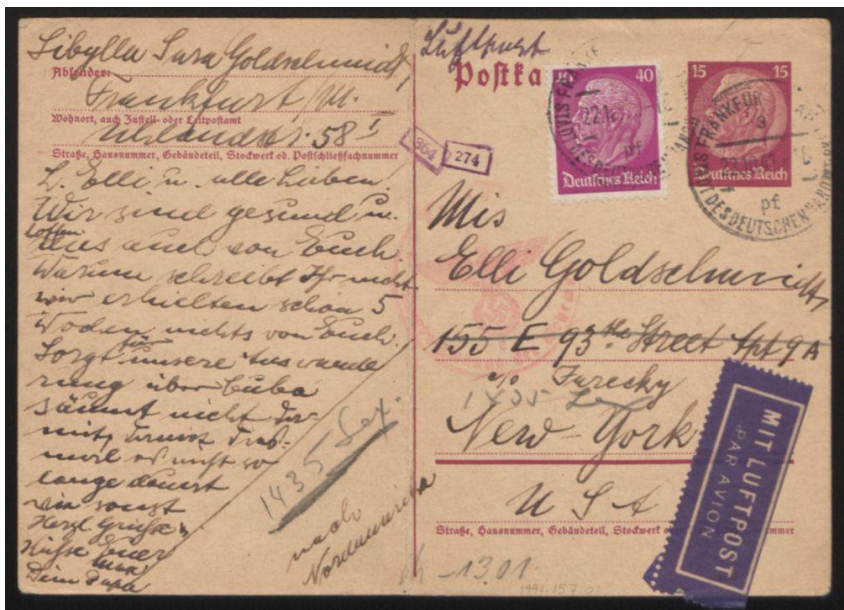 Sibylla Sara Goldschmidt
Absender:
Frankfurt/M.
Wohnort, auch Zustell- oder Leitpostamt
Uhlandstr. 58 I
Straße, Hausnummer, Gebäudeteil, Stockwerk od. Postschließfachnummer
L. Elli u. alle Lieben.
Wir sind gesund u.
hoffen
das auch von Euch.
Warum schreibt Ihr nicht
wir erhielten schon 5
Wochen nichts von Euch.
Sorgt für unsere Auswande
rung über Cuba
säumt nicht da-
mit, damit
mal es nicht so
lange dauert
wie sonst
Herzl Grüße
Küsse Euer
Dein Papa
1435 Lex.
nach
Nordamerika
Luftpost
Postka
40
15 15
Deutsches Reich
Deutsches Reich
364
274
Mis
Elli Goldschmidt
155 E 93 the Street Apt 9A
c/o Turesky
1435 Lex
New-York
U S A
Straße, Hausnummer, Gebäudeteil, Stockwerk
mmer
MIT LUFTPOST
PAR AVION
1301
1991.157.01